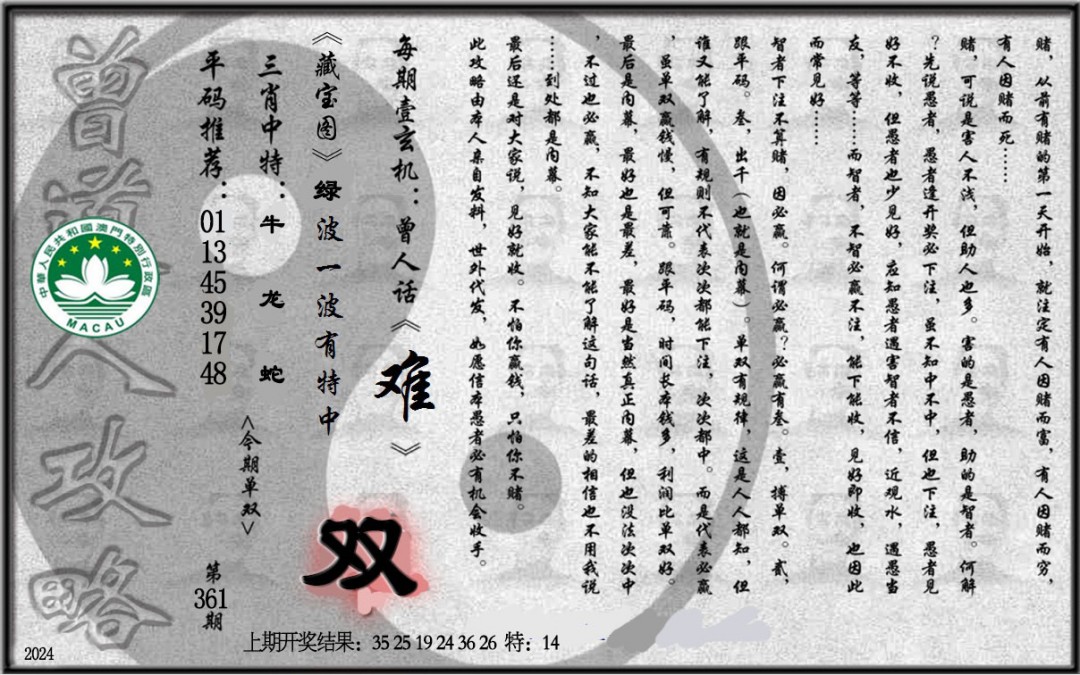 赌，从前有赌的第一天开始，就注定有人因赌而富，有人因赌而穷，
有人因赌而死……
赌，可说是害人不浅，但助人也多。害的是愚者，助的是智者。何解
？先说愚者，愚者逢开奖必下注，虽不知中不中，但也下注，愚者见
好不收，但愚者也少见好，应知愚者遇害智者不信，近观水，遇愚当
友，等等……而智者，不智必赢不注，能下能收，见好即收，也因此
而常见好……
智者下注不算赌，因必赢。何谓必赢？必赢有叁。壹，搏单双。贰，
跟平码。叁，出千（也就是内幕）。单双有规律，这是人人都知，但
谁又能了解，有规则不代表次次都能下注，次次都中。而是代表必赢
，虽单双赢钱慢，但可靠。跟平码，时间长本钱多，利润比单双好。
最后是内幕，最好也是最差，最好是当然真正内幕，但也没法次次中
，不过也必赢，不知大家能不能了解这句话，最差的相信也不用我说
……到处都是内幕。
最后还是对大家说，见好就收。不怕你赢钱，只怕你不赌。
此攻略由本人亲自发料，世外代发，如愿信本愚者必有机会收手。
每期壹玄机：曾人话《难》
《藏宝图》绿波一波有特中
双
三肖中特：牛 龙 蛇
<今期单双>
平码推荐：01 13 45 39 17 48
第361期
曾道人攻略
中華人民共和國澳門特別行政區
MACAU
上期开奖结果：35 25 19 24 36 26 特：14
2024